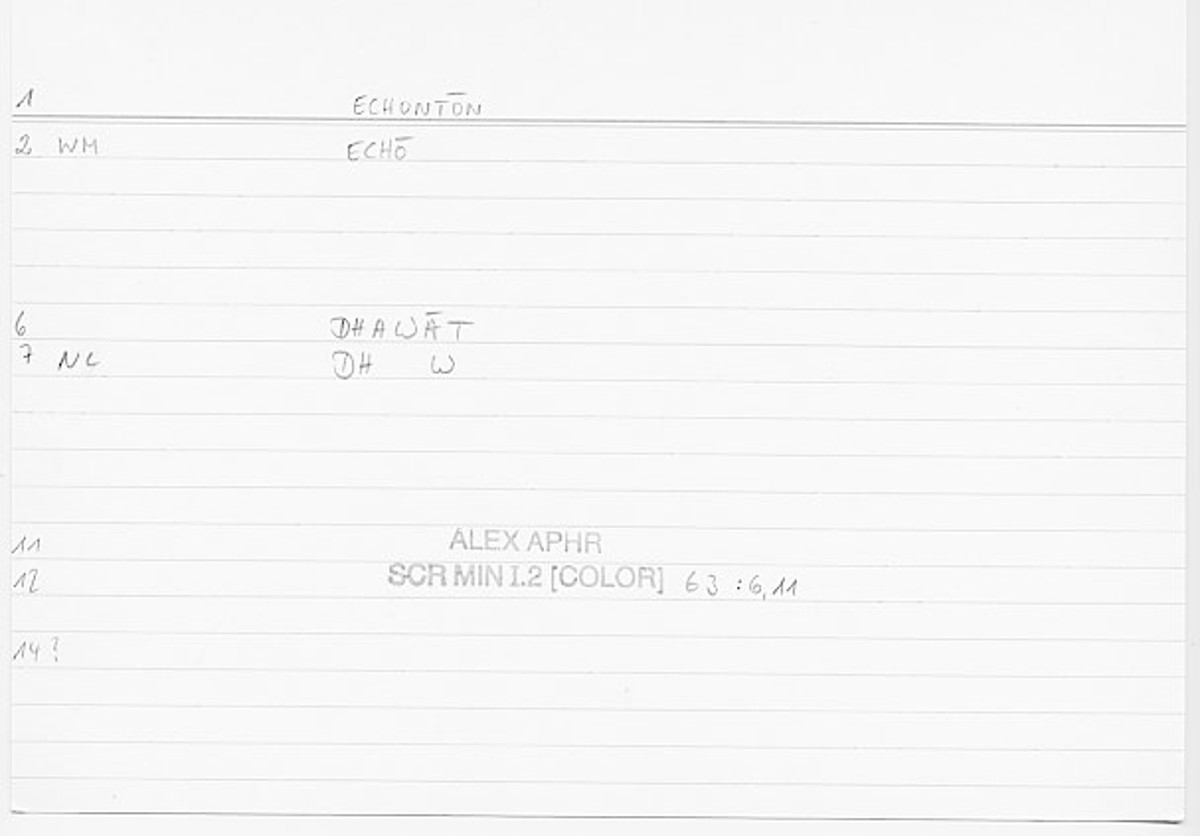 1 ECHONTŌN
2 WM ECHŌ
6 DHAWĀT
7 NL DH W
11 ALEX APHR
12 SCR MIN I.2 [COLOR] 63 :6,11
14?